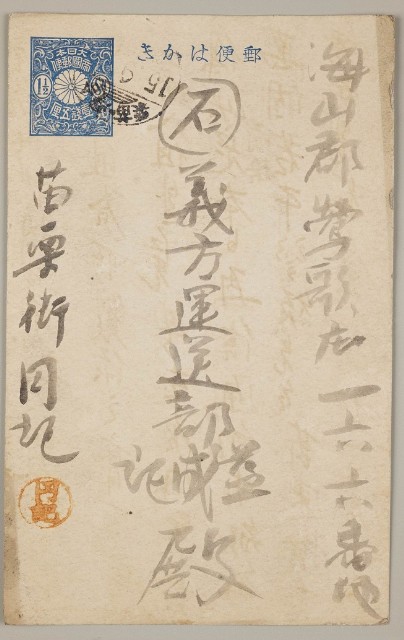 郵便はかき
大日本
帝國郵便
1½
壹錢五厘
海山郡鶯歌庄一六六番地
石
義方運送部
益成記
殿
苗栗街同記